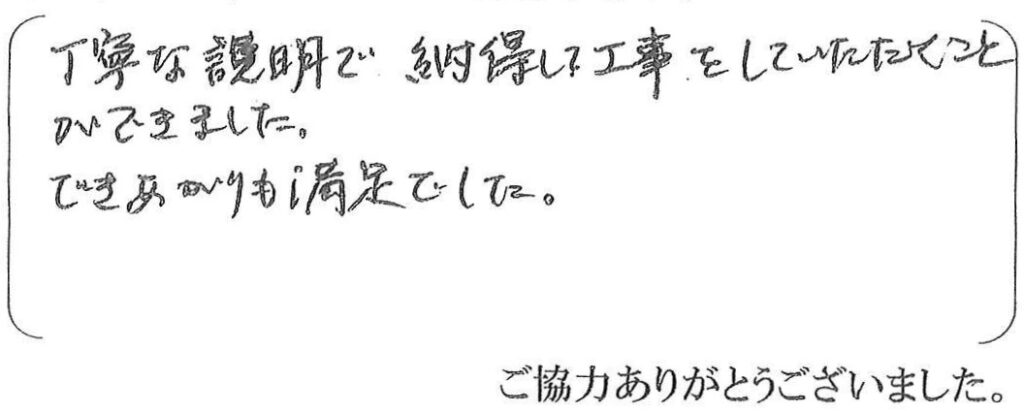 丁寧な説明で 納得して工事をしていただくこと
ができました。
できあがりも満足でした。
ご協力ありがとうございました。